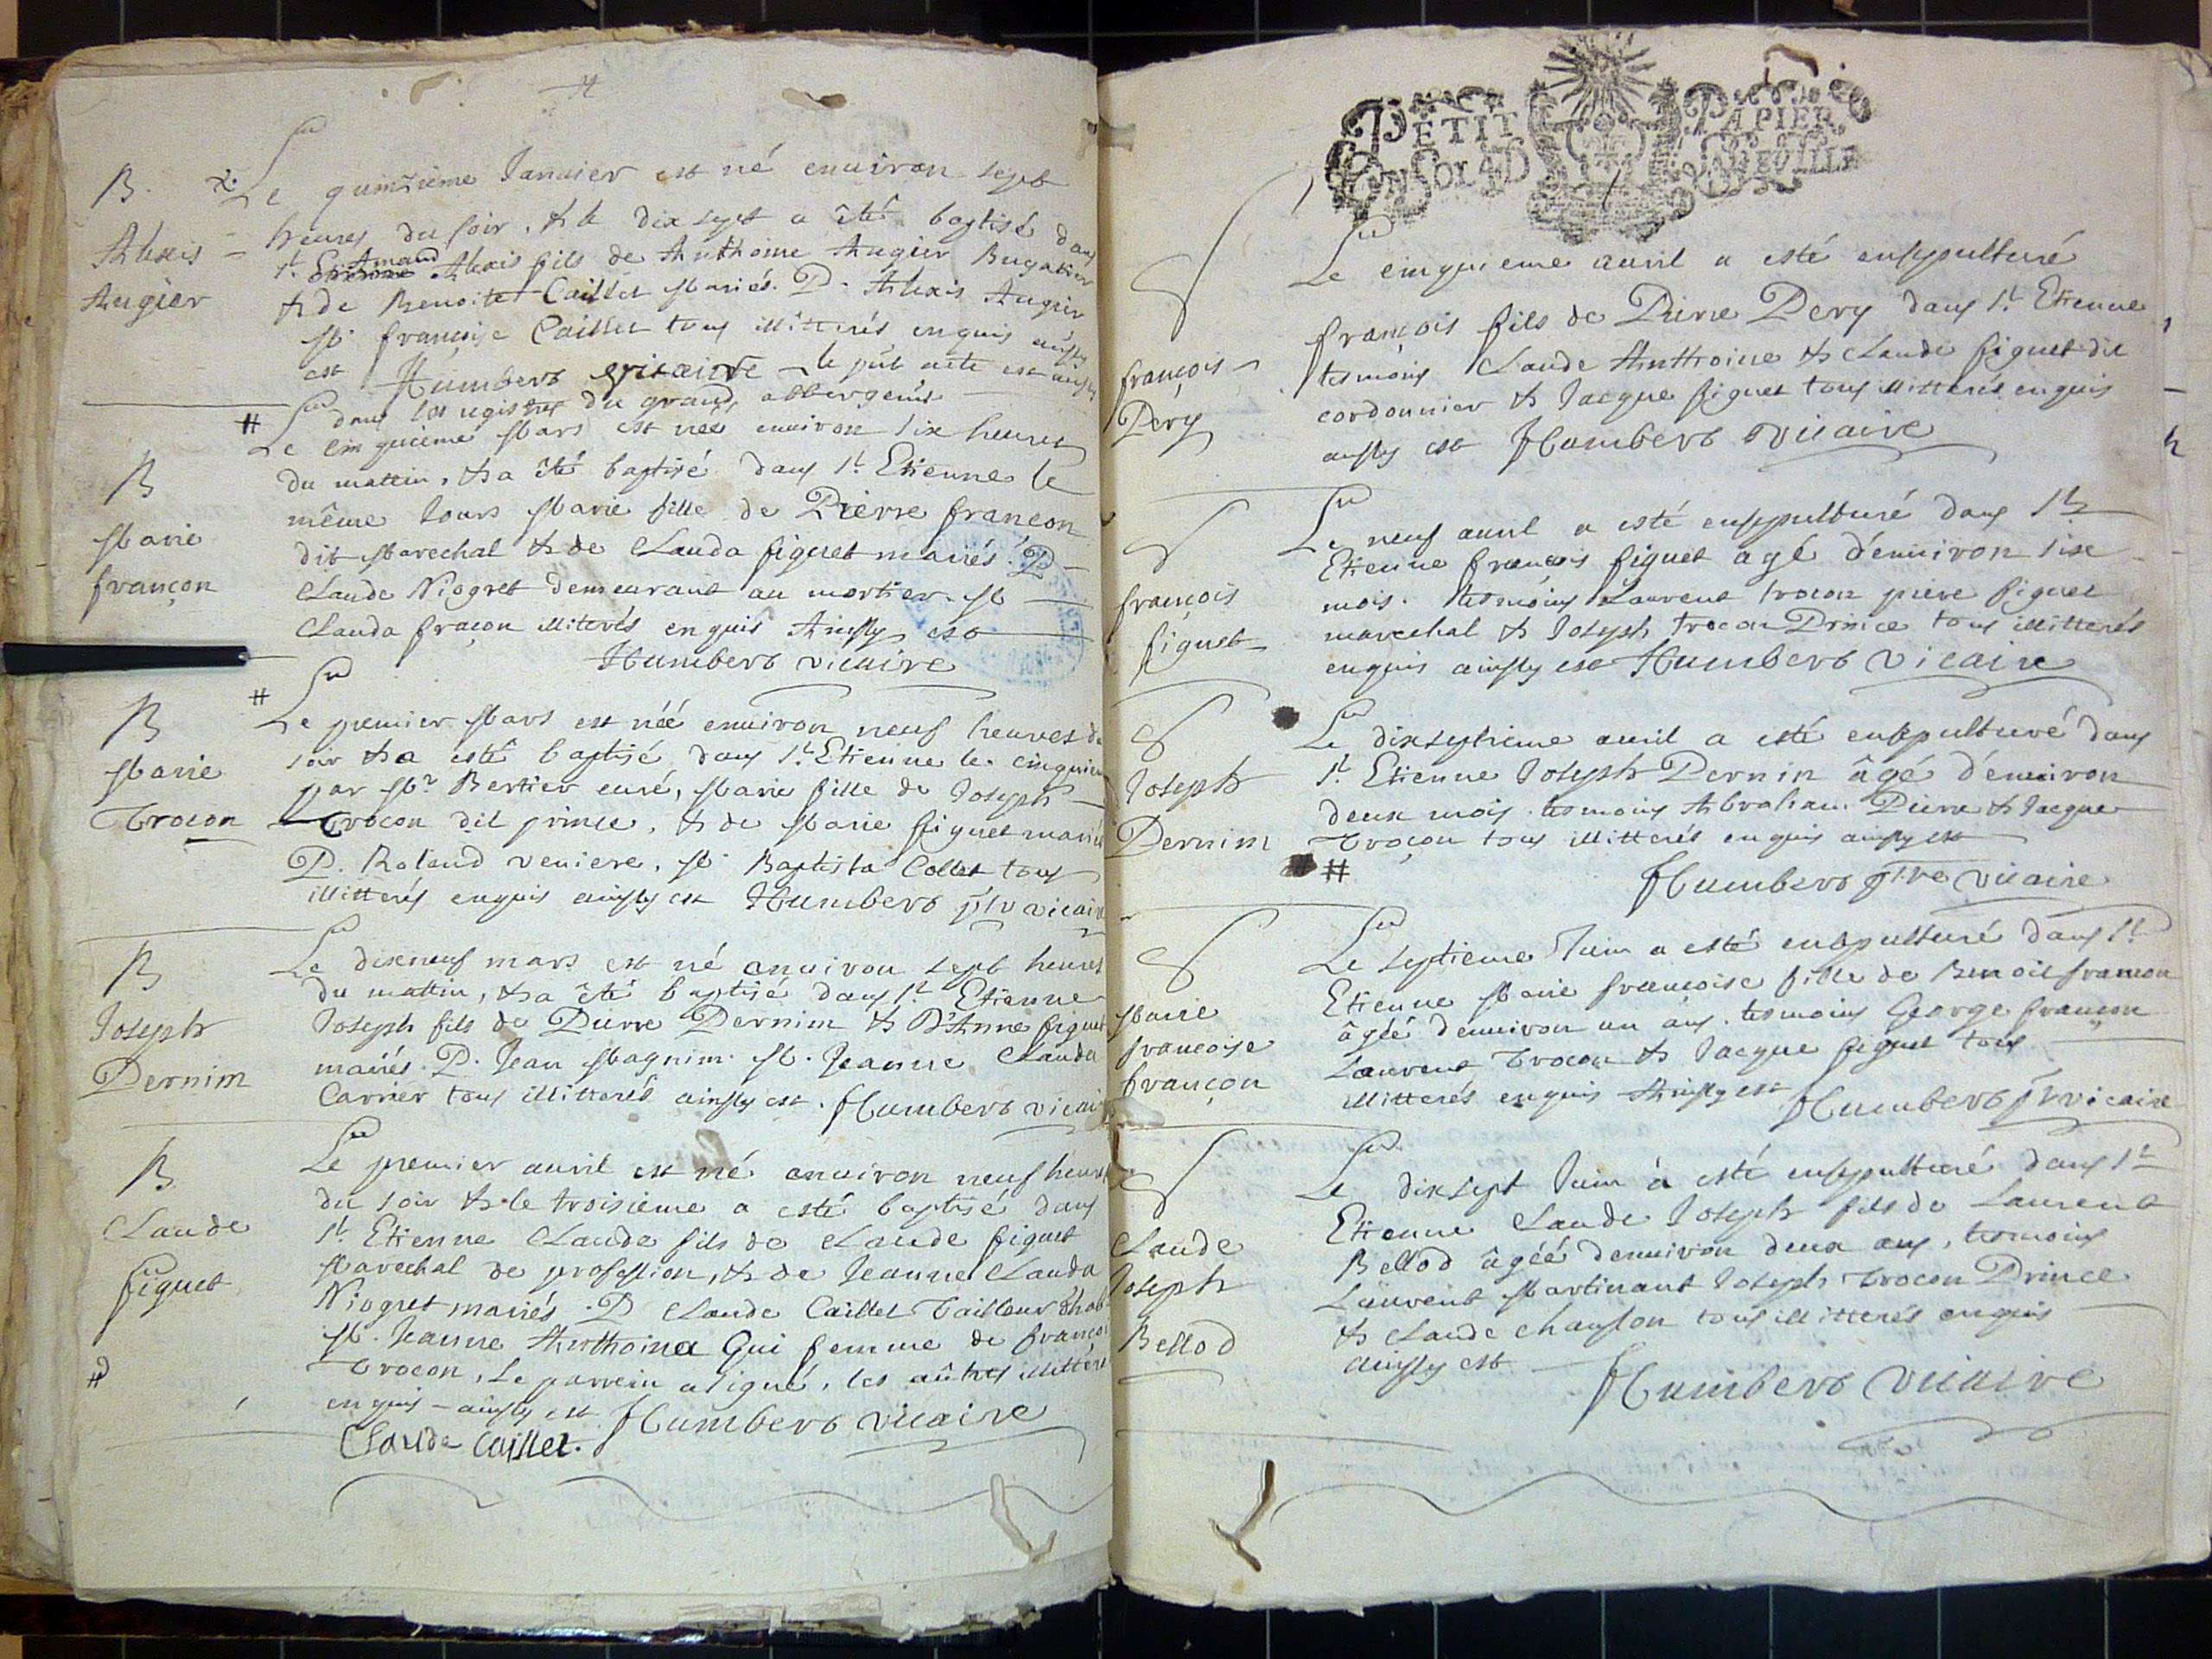 B.
Alexis
Augier
Le quinzieme Januier est né enuiron sept
heures du soir, & le dix sept a êté baptisé dans
St. Amand Alexis fils de Anthoine Augier Bugatier
& de Benoite Caillet Mariés. P. Alexis Augier
M. françoise Caillet tous illitterés enquis ainsÿ
est Humbert vicaire – le pnt acte est aussy
dans les registres du grand abbergemt
B
Marie
françon
# Le cinquieme Mars est née enuiron six heures
du mattin, & a êté baptisé dans St. Etienne le
même Jours Marie fille de Pierre françon
dit Marechal & de Clauda figuet mariés. P
Claude Niogret demeurant au mortier. M
Clauda fraçon illiterés enquis Ainsÿ est
Humbert vicaire
B
Marie
Trocon
# Le premier Mars est néé enuiron neuf heures du
soir & a esté baptisé dans St. Etienne le cinquieme
par Mr Bertier curé, Marie fille de Joseph
Trocon dit prince, & de Marie figuet mariés
P. Roland veniere, M. Baptista Collet tous
illitterés enquis ainsÿ est Humbert ptre vicaire
B
Joseph
Pernim
Le dixneuf mars est né enuiron sept heures
du mattin, & a êté baptisé dans St. Etienne
Joseph fils de Pierre Pernim & D'Anne figuet
mariés. P. Jean Magnim. M. Jeanne Clauda
Carrier tous illitterés ainsÿ est. Humbert vicaire
B
Claude
figuet
#
Le premier auril est né enuiron neuf heures
du soir & le troisieme a esté baptisé dans
St. Etienne Claude fils de Claude figuet
Marechal de profession, & de Jeanne Clauda
Niogret mariés. P Claude Caillet Tailleur
M. Jeanne Anthoina Gui femme de françois
Trocon, Le parrein a signé, les aûtres illitterés
enquis – ainsÿ est Humbert vicaire
Claude Caillet.
PETIT PAPIER
S
françois
Péry
Le cinquieme auril a esté ensepulturé
françois fils de Pierre Pery dans St. Etienne
tesmoins Claude Anthoine & Claude figuet dit
cordonnier & Jacque figuet tous illitterés enquis
ainsÿ est Humbert vicaire
S
françois
figuet
Le neuf auril a esté ensepulturé dans St
Etienne françois figuet agé d'enuiron six
mois. tesmoins Laurent trocon piere figuet
marechal & Joseph trocon Prince tous illitterés
enquis ainsÿ est Humbert vicaire
S
Joseph
Pernim
Le dixseptieme auril a esté ensepulturé dans
St Etienne Joseph Pernin âgé d'enuiron
deux mois. tesmoins Abraham Pierre & Jacque
Troçon tous illitterés enquis ainsÿ est
# Humbert ptre vicaire
S
Marie
françoise
françon
Le septieme Juin a esté ensepulturé dans St
Etienne Marie françoise fille de Benoit françon
âgéé denuiron un ans. tesmoins George françon
Laurent Trocon & Jacque figuet tous
illitterés enquis Ainsÿ est Humbert ptre vicaire
S
Claude
Joseph
Bellod
Le dixsept Juin à esté ensepulturé dans St
Etienne Claude Joseph fils de Laurent
Bellod âgéé denuiron deux ans, tesmoins
Laurent Martinant Joseph Trocon Prince
& Claude chanson tous illitterés enquis
ainsÿ est
Humbert vicaire